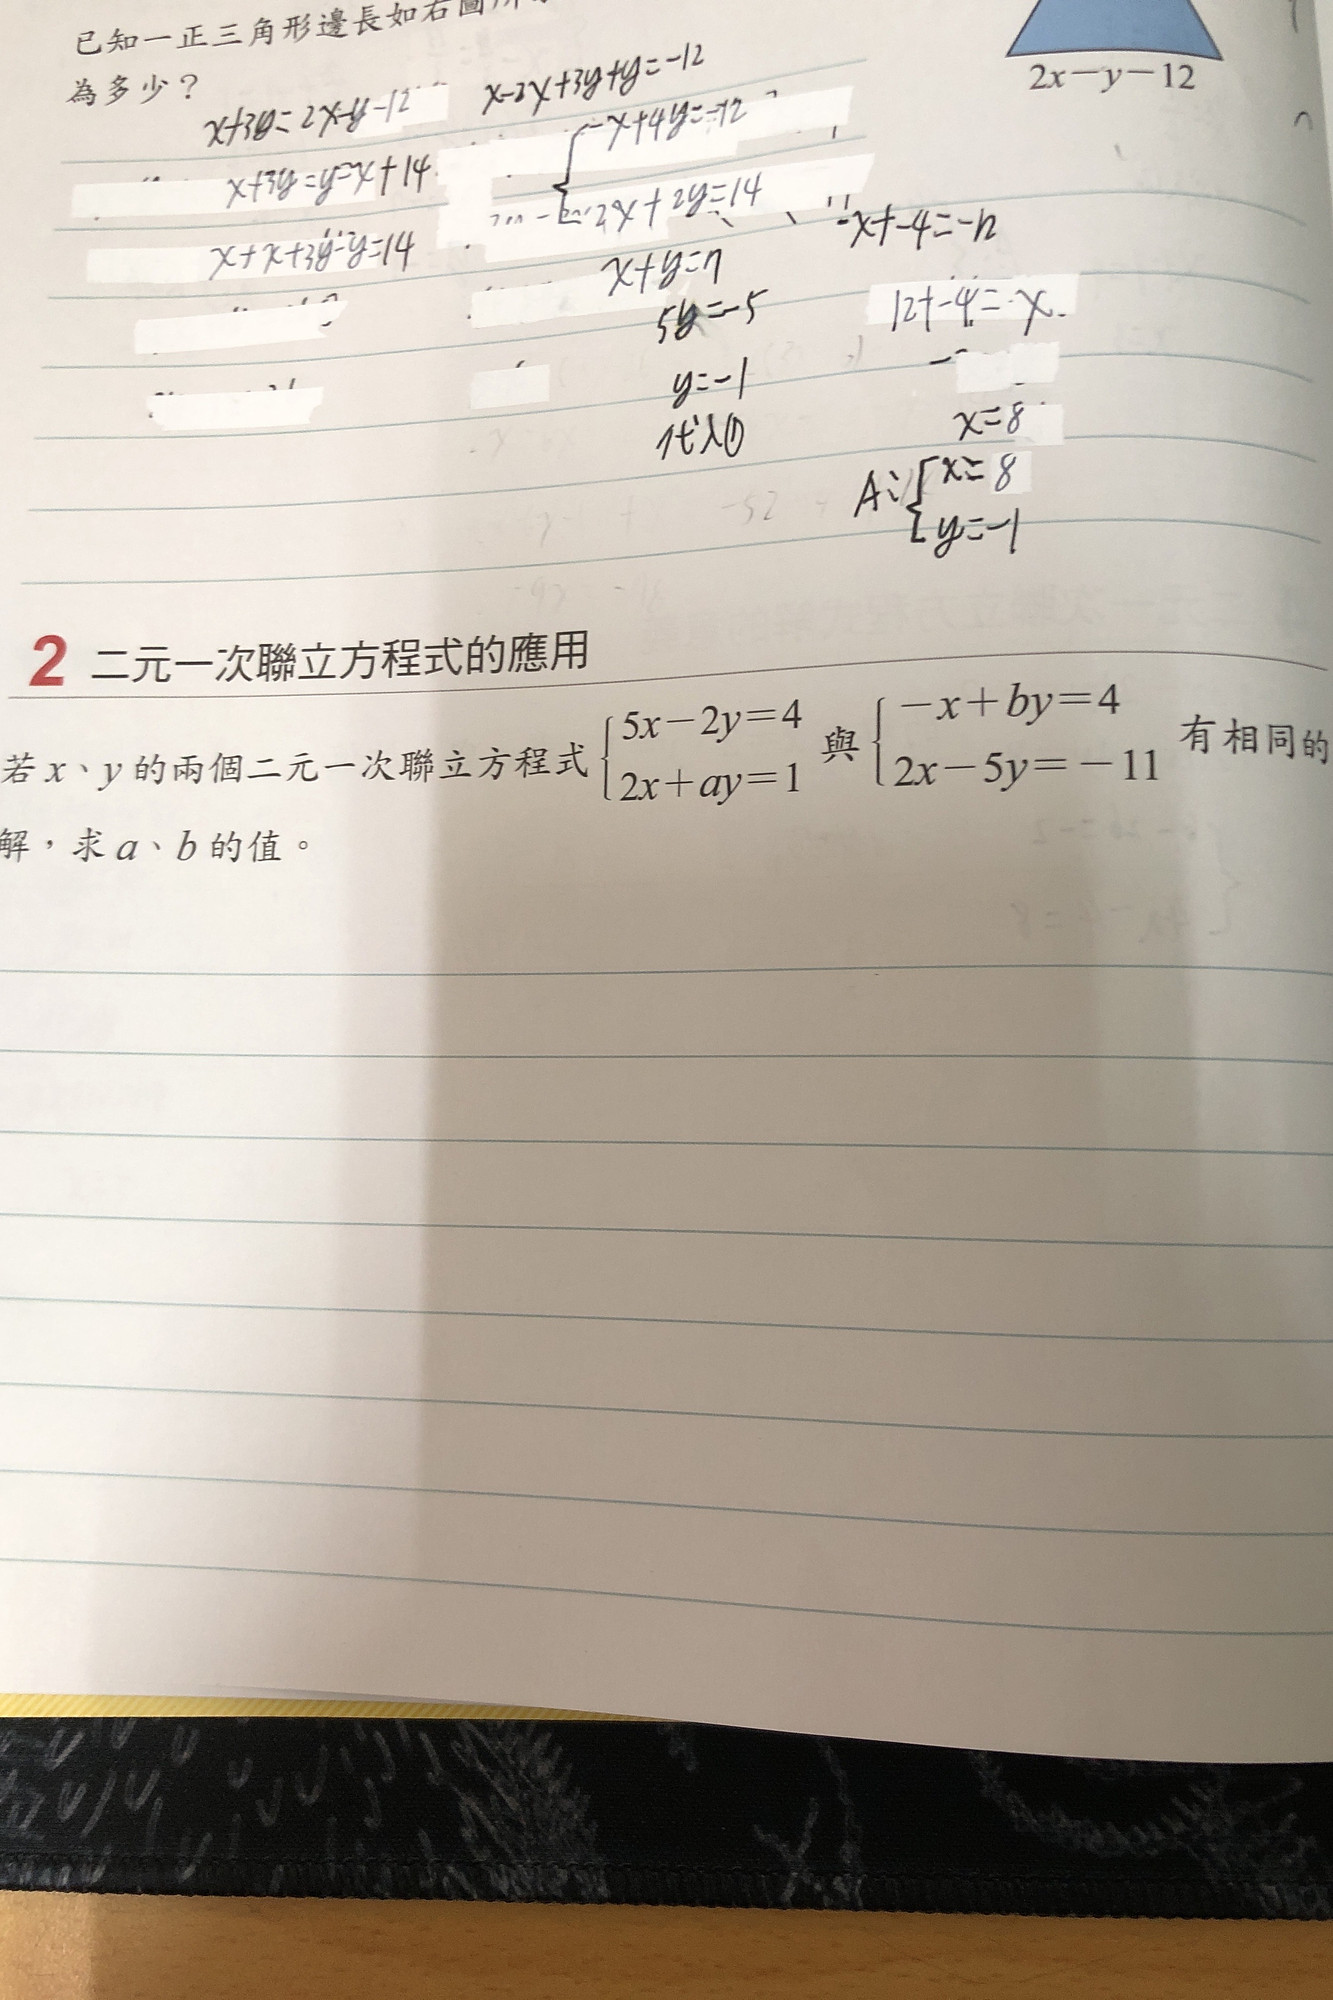 已知一正三角形邊長如右圖所
為多少？
2x－y－12
x+3y=2x-y-12
x-2x+3y+y=-12
x+3y=y-x+14
-x+4y=-12
x+x+3y-y=14
2x+2y=14
x+y=7
5y=-5
y=-1
代入①
-x+-4=-12
12+-4=x
x=8
A: x=8
y=-1
2 二元一次聯立方程式的應用
若 x、y 的兩個二元一次聯立方程式 { 5x－2y＝4 2x＋ay＝1 與 { －x＋by＝4 2x－5y＝－11 有相同的
解，求 a、b 的值。